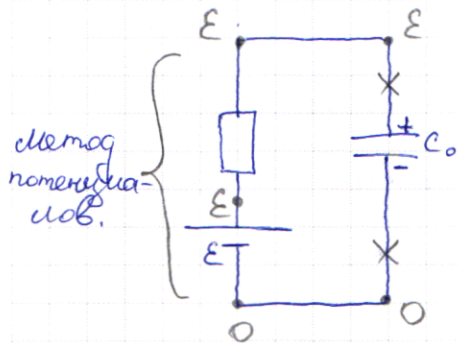 ℰ ℰ
Метод
потенциа-
лов.
ℰ
ℰ
+
C₀
-
0 0